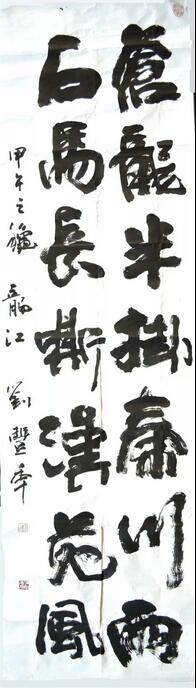 蒼龍半掛秦川雨
石馬長嘶漢苑風
甲午之 龍江 劉豐年